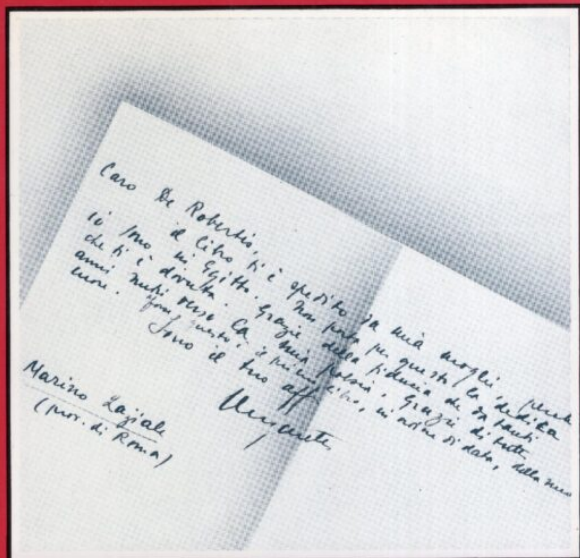 Caro De Robertis,
il libro ti è spedito da mia moglie, perché
io sono in Egitto. Non porta per questo la dedica
che ti è dovuta. Grazie della fiducia che da tanti
anni nutri verso la mia poesia. Grazie di tutto
cuore. questo è il primo libro, in ordine di data, della
Sono il tuo aff
Ungaretti
Marino Laziale
(prov. di Roma)